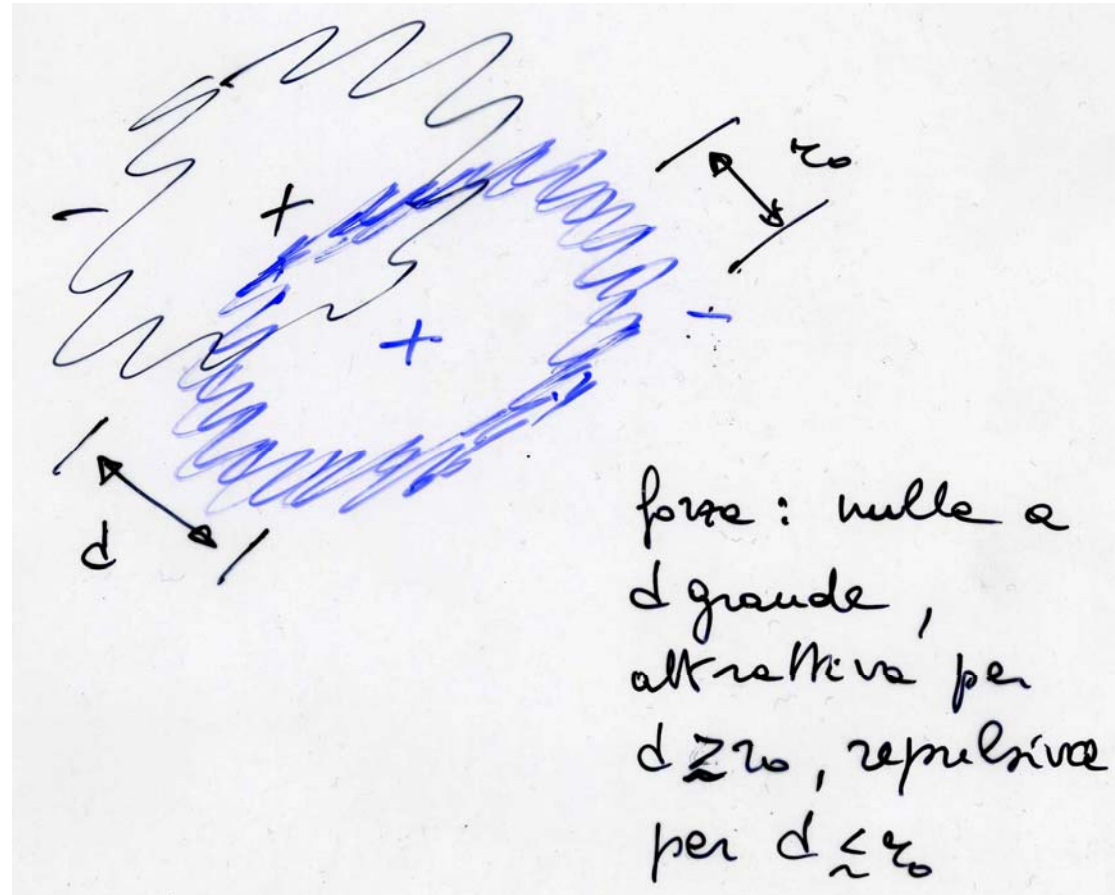 - + r₀
+ -
d
forza: nulla a
d grande,
attrattiva per
d ≳ r₀, repulsiva
per d ≲ r₀